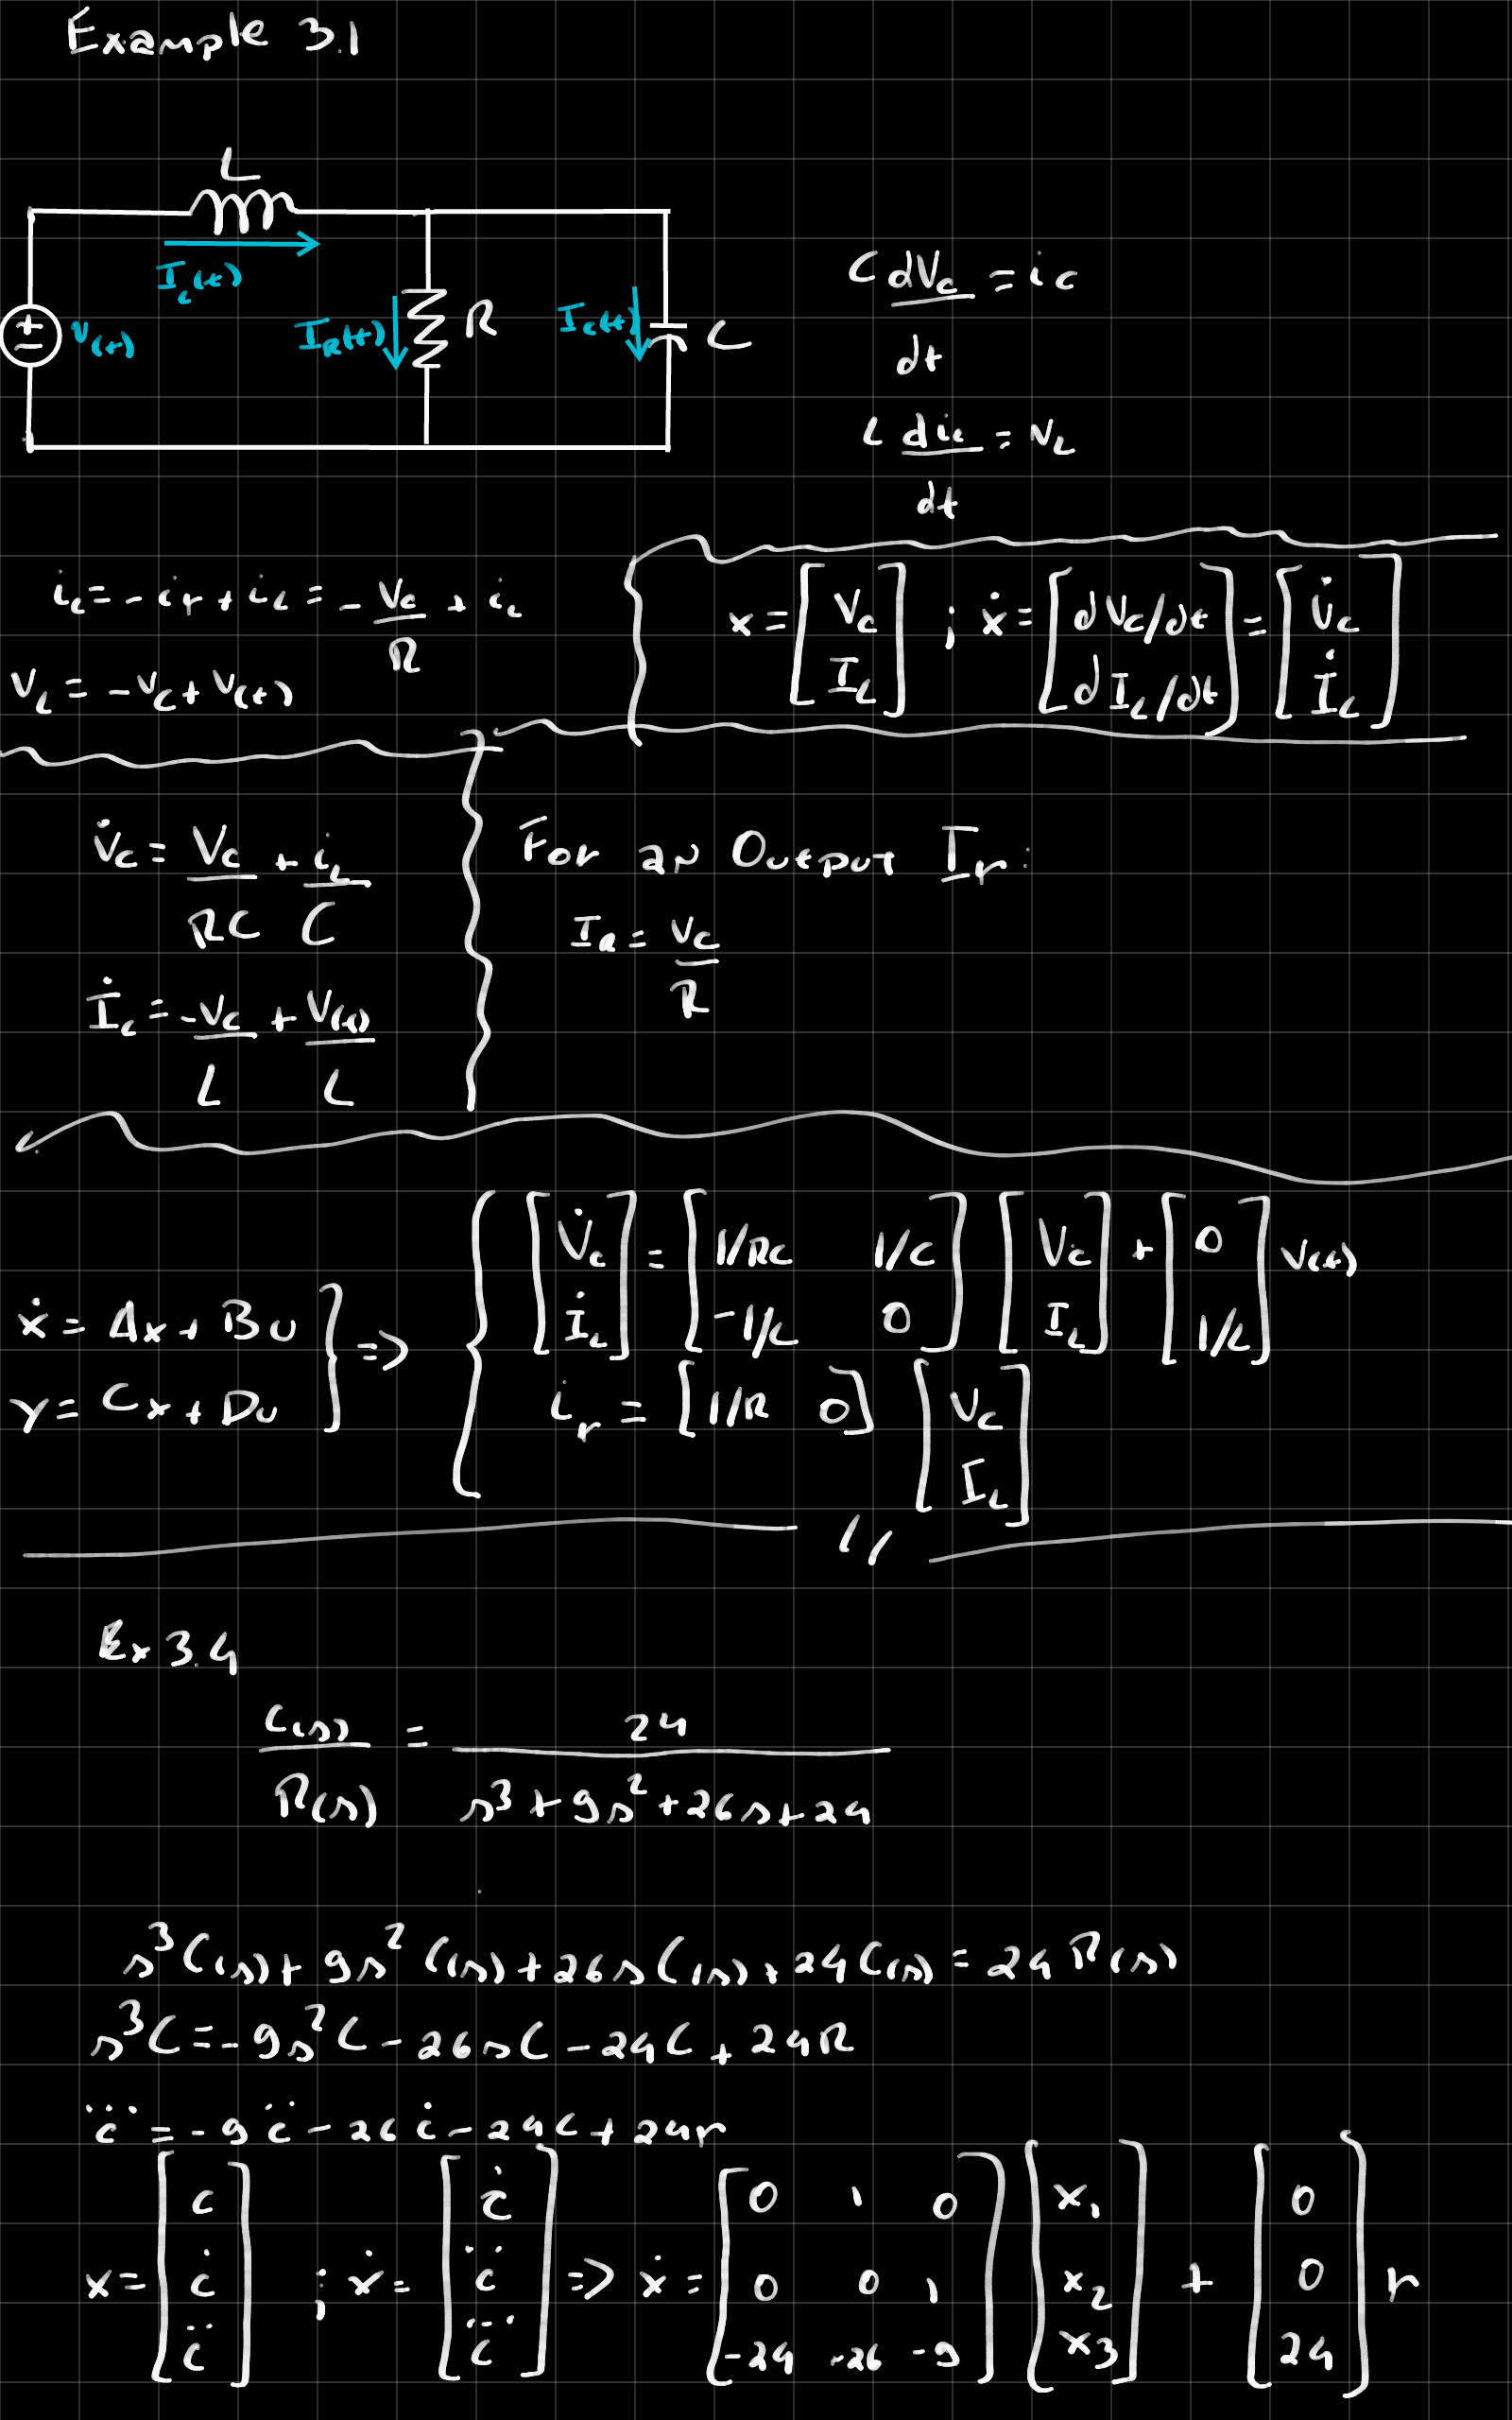 Example 3.1
L
I_L(t)
v(t)
I_R(t)
R
I_c(t)
C
C dVc/dt = ic
L diL/dt = VL
ic = -ir + iL = -Vc/R + iL
VL = -Vc + V(t)
x = [Vc; IL] ; ẋ = [dVc/dt; dIL/dt] = [V̇c; İL]
V̇c = Vc/RC + iL/C
İL = -Vc/L + V(t)/L
For an Output Ir:
IR = Vc/R
ẋ = Ax + Bu
y = Cx + Du } =>
{ [V̇c; İL] = [1/RC 1/C; -1/L 0] [Vc; IL] + [0; 1/L] V(t)
ir = [1/R 0] [Vc; IL]
Ex 3.4
C(s)/R(s) = 24/(s³+9s²+26s+24)
s³C(s)+9s²C(s)+26sC(s)+24C(s) = 24R(s)
s³C = -9s²C - 26sC - 24C + 24R
c⃛ = -9c̈ - 26ċ - 24c + 24r
x = [c; ċ; c̈] ; ẋ = [ċ; c̈; c⃛] => ẋ = [0 1 0; 0 0 1; -24 -26 -9] [x₁; x₂; x3] + [0; 0; 24] r